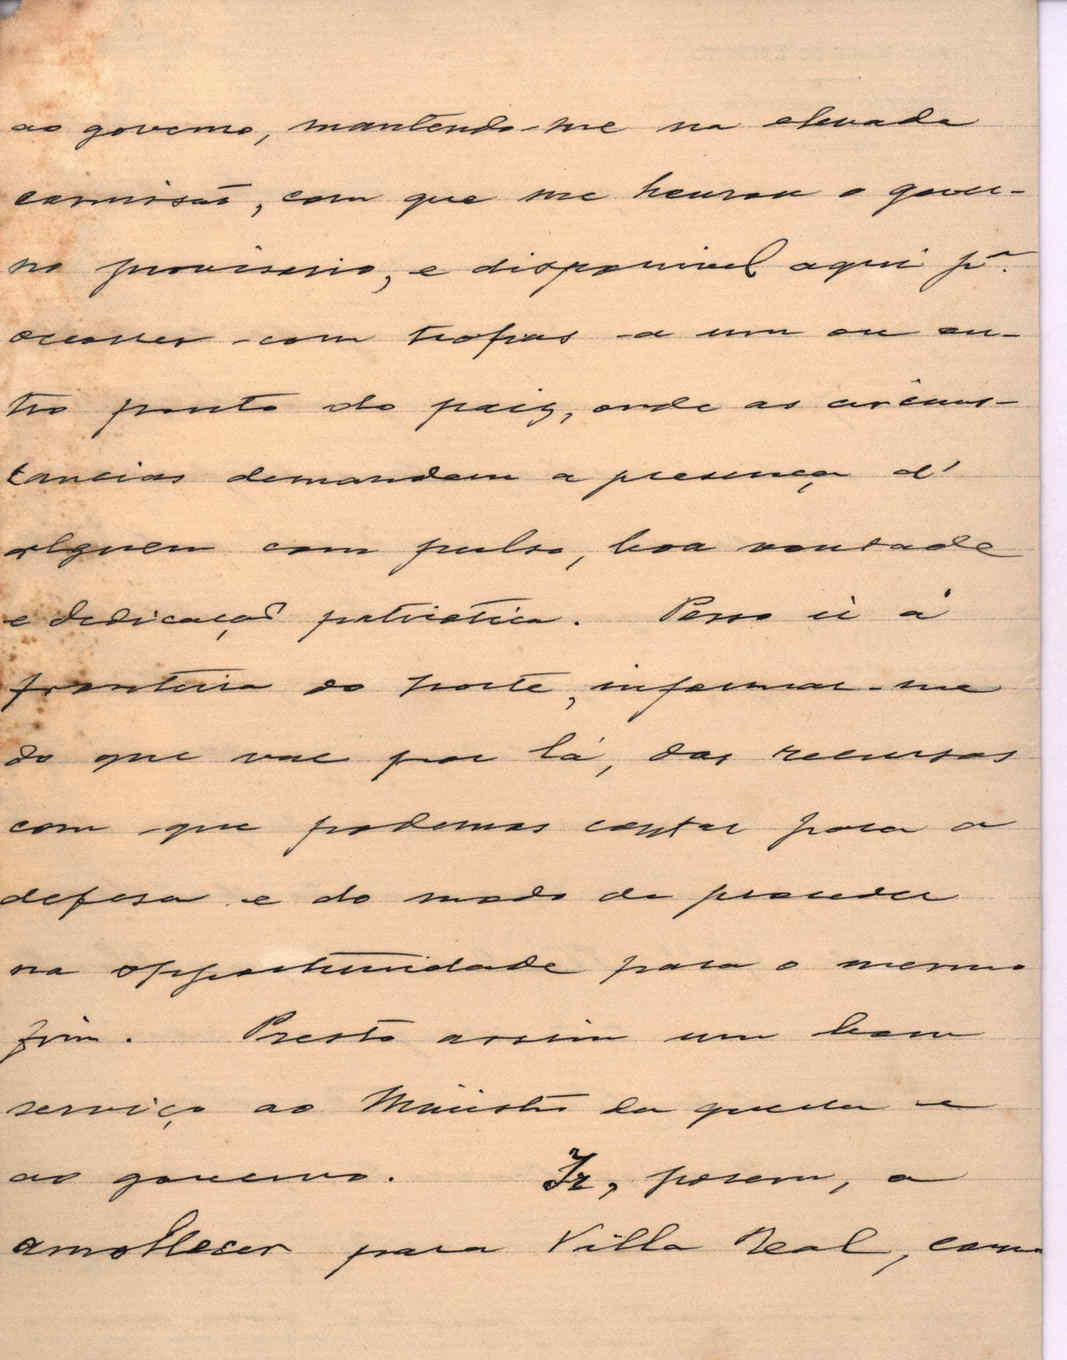 ao governo, mantendo-me na elevada
comissão, com que me honrou o gover-
no provisorio, e disponivel aqui pª.
occorrer com tropas a um ou ou-
tro ponto do paiz, onde as circuns-
tancias demandem a presença d'
alguem com pulso, boa vontade
e dedicação patriotica. Posso ir á
fronteira do norte, informar-me
do que vae por lá, dos recursos
com que podemos contar para a
defesa e do modo de proceder
na opportunidade para o mesmo
fim. Presto assim um bom
serviço ao Ministro da guerra e
ao governo. Ir, porem, a
amollecer para Villa Real, como